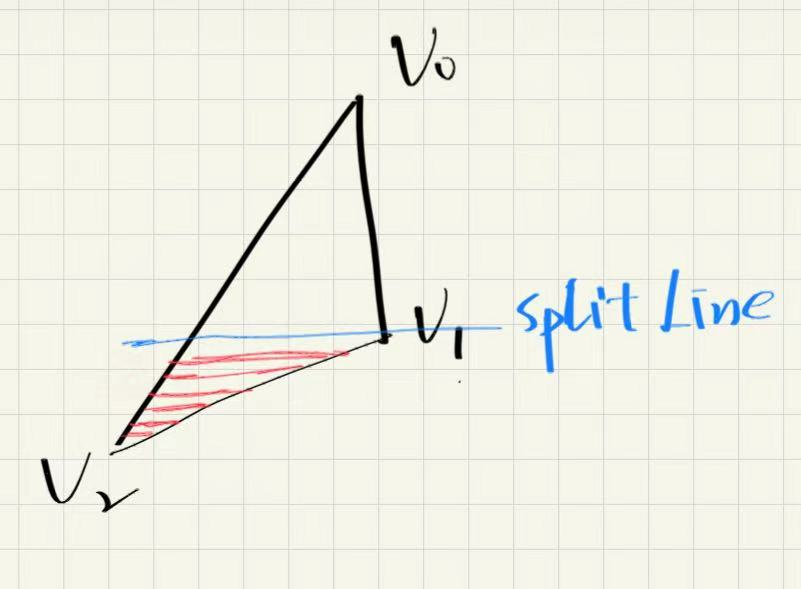 V0
V1
split Line
V2